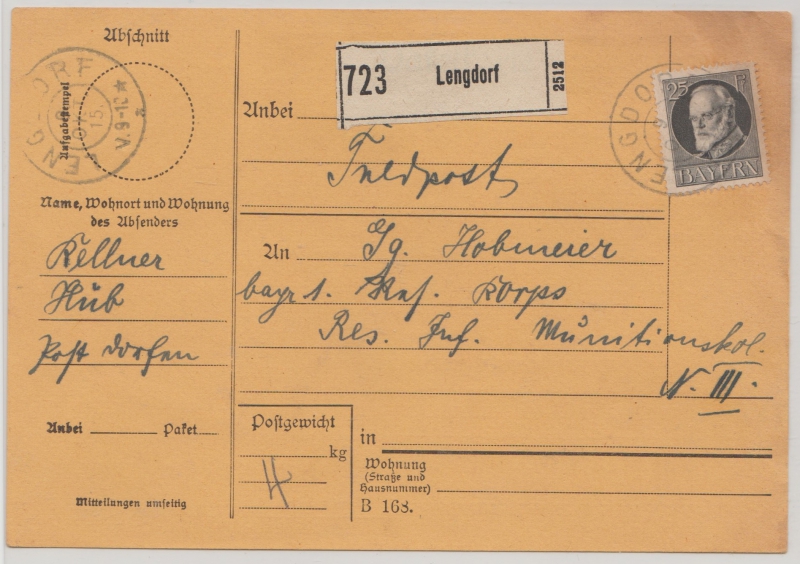 Abschnitt
Aufgabestempel
LENGDORF
V.9-12
15
Name, Wohnort und Wohnung
des Absenders
Kellner
Hub
Post Dorfen
Anbei Paket
Mitteilungen umseitig
723 Lengdorf 2512
25 Pf
BAYERN
LENGDOR
Anbei
Feldpost
An Jg. Hobmeier
bayr 1. Res. Korps
Res. Inf. Munitionskol.
N. III.
Postgewicht
kg
4
in
Wohnung
(Straße und
Hausnummer)
B 168.